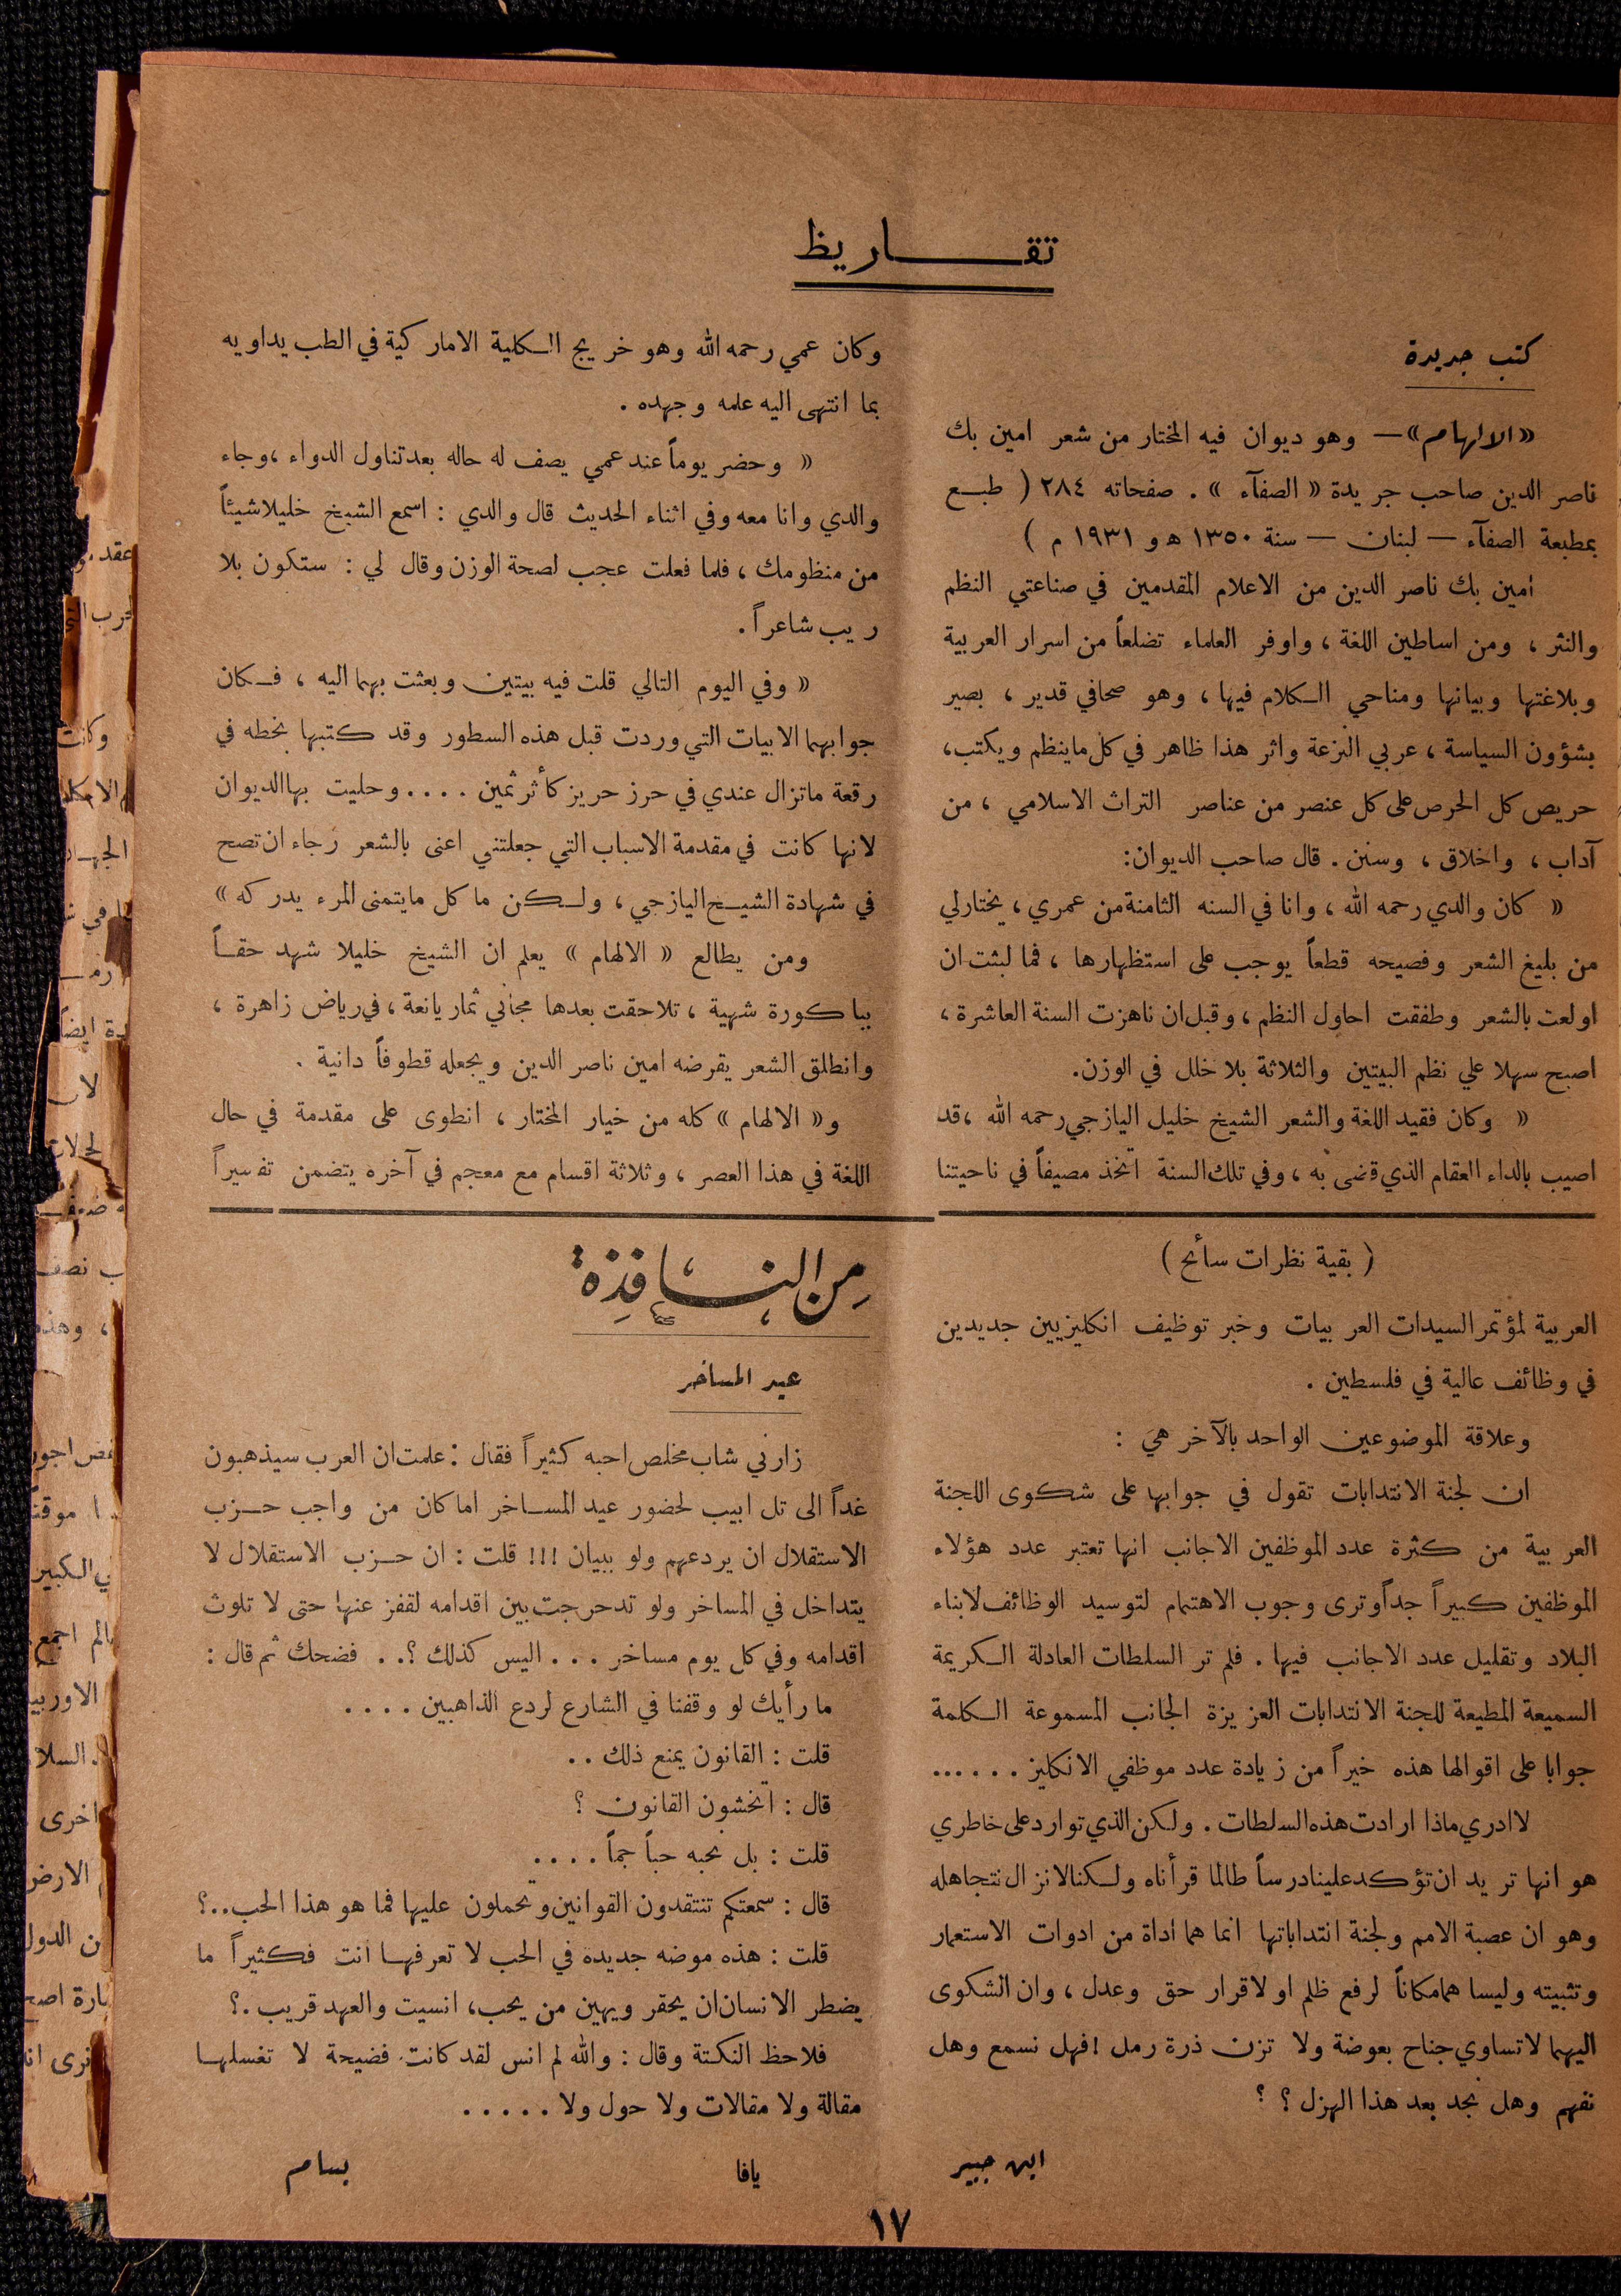 تقاريظ
كتب جديدة
«الالهام» — وهو ديوان فيه المختار من شعر امين بك
ناصر الدين صاحب جريدة « الصفآء » . صفحاته ٢٨٤ ( طبع
بمطبعة الصفآء — لبنان — سنة ١٣٥٠ ه و ١٩٣١ م )
امين بك ناصر الدين من الاعلام المقدمين في صناعتي النظم
والنثر ، ومن اساطين اللغة ، واوفر العلماء تضلعاً من اسرار العربية
وبلاغتها وبيانها ومناحي الكلام فيها ، وهو صحافي قدير ، بصير
بشؤون السياسة ، عربي النزعة واثر هذا ظاهر في كل ماينظم ويكتب،
حريص كل الحرص على كل عنصر من عناصر التراث الاسلامي ، من
آداب ، واخلاق ، وسنن . قال صاحب الديوان:
« كان والدي رحمه الله ، وانا في السنه الثامنة من عمري ، يختارلي
من بليغ الشعر وفصيحه قطعاً يوجب على استظهارها ، فما لبثت ان
اولعت بالشعر وطفقت احاول النظم ، وقبل ان ناهزت السنة العاشرة ،
اصبح سهلا علي نظم البيتين والثلاثة بلا خلل في الوزن.
« وكان فقيد اللغة والشعر الشيخ خليل اليازجي رحمه الله ، قد
اصيب بالداء العقام الذي قضى به ، وفي تلك السنة اتخذ مصيفاً في ناحيتنا
وكان عمي رحمه الله وهو خريج الكلية الاماركية في الطب يداويه
بما انتهى اليه علمه وجهده .
« وحضر يوماً عند عمي يصف له حاله بعد تناول الدواء ، وجاء
والدي وانا معه وفي اثناء الحديث قال والدي : اسمع الشيخ خليلا شيئاً
من منظومك ، فلما فعلت عجب لصحة الوزن وقال لي : ستكون بلا
ريب شاعراً .
« وفي اليوم التالي قلت فيه بيتين وبعثت بهما اليه ، فكان
جوابهما الابيات التي وردت قبل هذه السطور وقد كتبها بخطه في
رقعة ماتزال عندي في حرز حريز كأثر ثمين . . . . وحليت بها الديوان
لانها كانت في مقدمة الاسباب التي جعلتني اعنى بالشعر رجاء ان تصح
في شهادة الشيخ اليازجي ، ولكن ما كل مايتمنى المرء يدركه »
ومن يطالع « الالهام » يعلم ان الشيخ خليلا شهد حقاً
بباكورة شهية ، تلاحقت بعدها مجاني ثمار يانعة ، في رياض زاهرة ،
وانطلق الشعر يقرضه امين ناصر الدين ويجعله قطوفاً دانية .
و« الالهام » كله من خيار المختار ، انطوى على مقدمة في حال
اللغة في هذا العصر ، وثلاثة اقسام مع معجم في آخره يتضمن تفسيراً
( بقية نظرات سائح )
العربية لمؤتمر السيدات العربيات وخبر توظيف انكليزيين جديدين
في وظائف عالية في فلسطين .
وعلاقة الموضوعين الواحد بالآخر هي :
ان لجنة الانتدابات تقول في جوابها على شكوى اللجنة
العربية من كثرة عدد الموظفين الاجانب انها تعتبر عدد هؤلاء
الموظفين كبيراً جداً وترى وجوب الاهتمام لتوسيد الوظائف لابناء
البلاد وتقليل عدد الاجانب فيها . فلم تر السلطات العادلة الكريمة
السميعة المطيعة للجنة الانتدابات العزيزة الجانب المسموعة الكلمة
جوابا على اقوالها هذه خيراً من زيادة عدد موظفي الانكليز . . . ...
لا ادري ماذا ارادت هذه السلطات . ولكن الذي توارد على خاطري
هو انها تريد ان تؤكد علينا درساً طالما قرأناه ولكنا لانزال نتجاهله
وهو ان عصبة الامم ولجنة انتداباتها انما هما اداة من ادوات الاستعمار
وتثبيته وليسا همامكاناً لرفع ظلم او لاقرار حق وعدل ، وان الشكوى
اليهما لاتساوي جناح بعوضة ولا تزن ذرة رمل ! فهل نسمع وهل
نفهم وهل نجد بعد هذا الهزل ؟ ؟
ابن جبير
من النافذة
عيد المساخر
زارني شاب مخلص احبه كثيراً فقال : علمت ان العرب سيذهبون
غداً الى تل ابيب لحضور عيد المساخر اما كان من واجب حزب
الاستقلال ان يردعهم ولو ببيان !!! قلت : ان حزب الاستقلال لا
يتداخل في المساخر ولو تدحرجت بين اقدامه لقفز عنها حتى لا تلوث
اقدامه وفي كل يوم مساخر . . . اليس كذلك ؟ . . فضحك ثم قال :
ما رأيك لو وقفنا في الشارع لردع الذاهبين . . . .
قلت : القانون يمنع ذلك . .
قال : اتخشون القانون ؟
قلت : بل نحبه حباً جماً . . . .
قال : سمعتكم تنتقدون القوانين وتحملون عليها فما هو هذا الحب..؟
قلت : هذه موضه جديدة في الحب لا تعرفها انت فكثيراً ما
يضطر الانسان ان يحقر ويهين من يحب، انسيت والعهد قريب .؟
فلاحظ النكتة وقال : والله لم انس لقد كانت فضيحة لا تغسلها
مقالة ولا مقالات ولا حول ولا . . . . .
يافا بسام
١٧